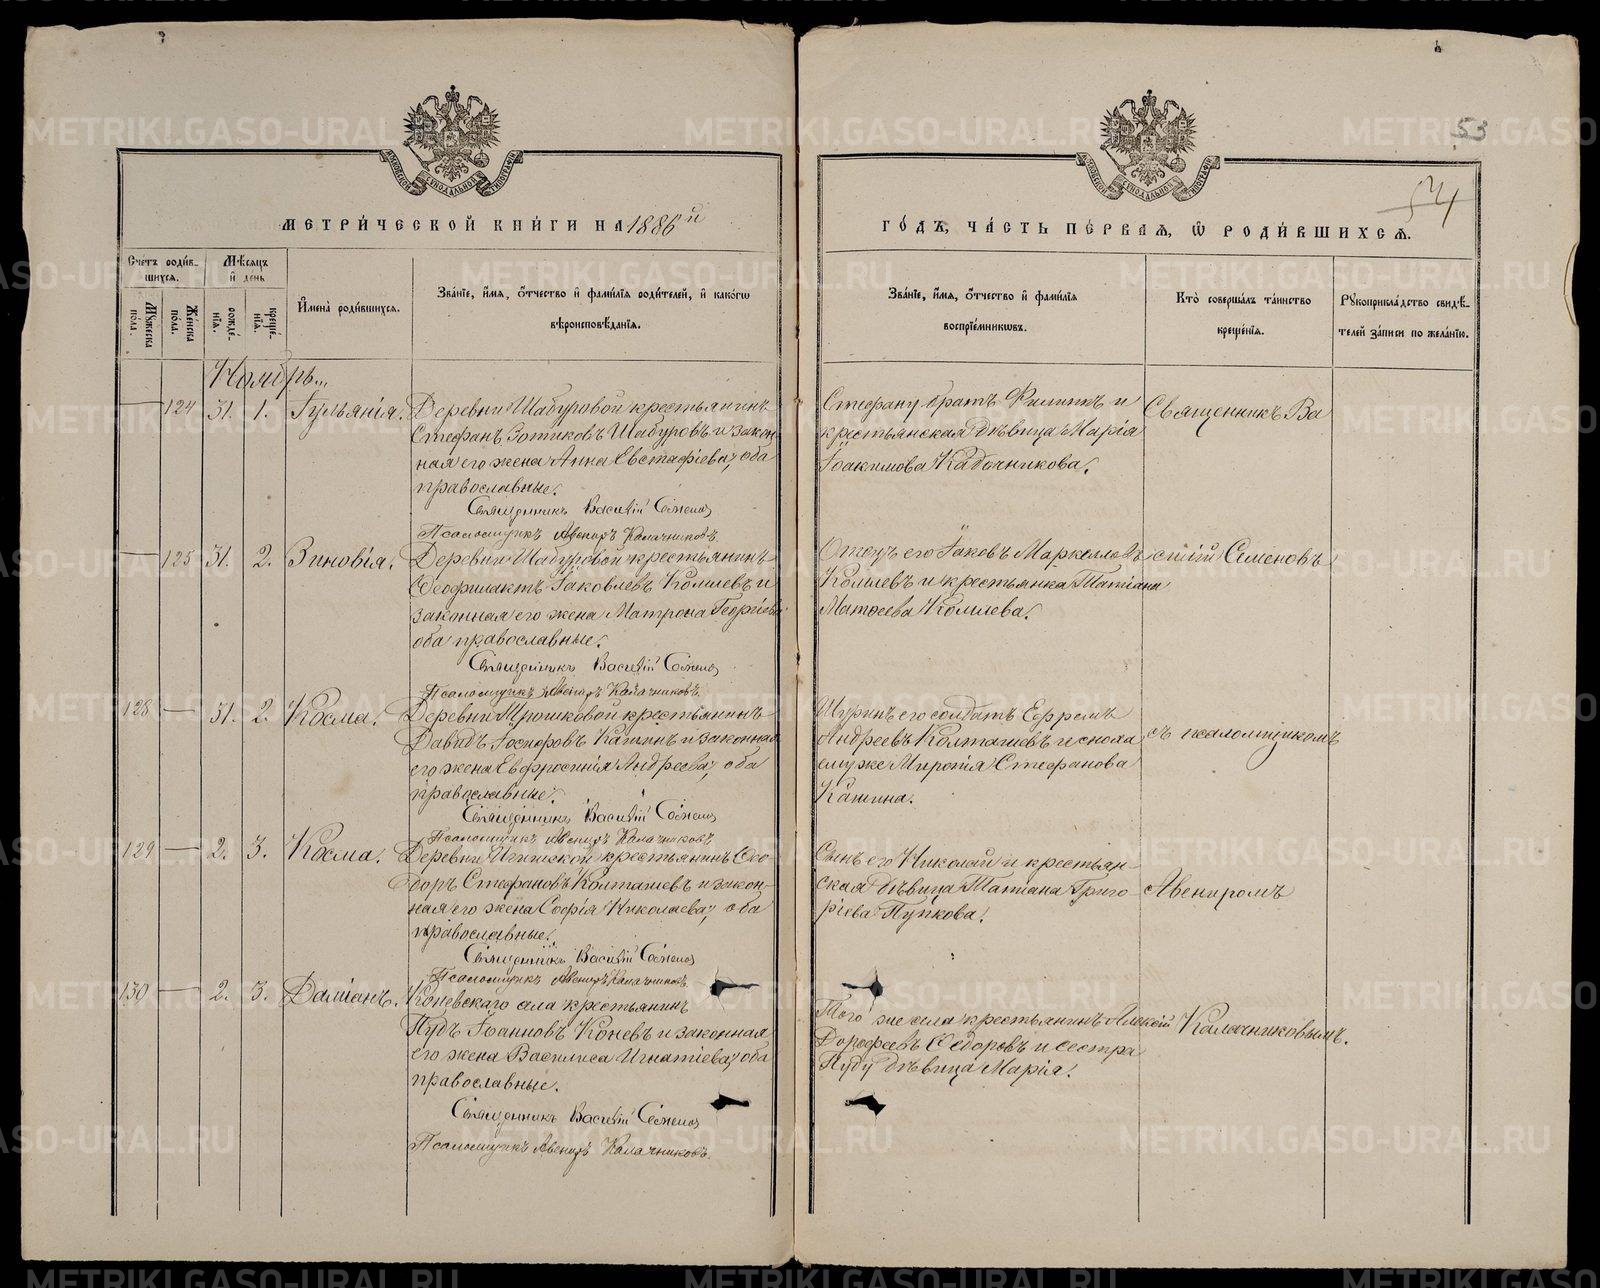 METRIKI.GASO-URAL.RU
53
54
МЕТРИ́ЧЕСКОЙ КНИ́ГИ НА 1886й
ГО́ДЪ, ЧА́СТЬ ПЕ́РВАЯ, Ѡ РОДИ́ВШИХСЯ.
Сче́тъ роди́в-
шихся.
Мѣ́сяцъ
и҆ де́нь
Мꙋ́жеска
по́ла.
Же́нска
по́ла.
рожде́-
нїя.
креще́-
нїя.
И҆мена̀ роди́вшихся.
Зва́нїе, и҆́мя, ѻ҆́тчество и҆ фами́лїя роди́телей, и҆ како́гѡ
вѣроисповѣ́данїя.
Зва́нїе, и҆́мя, ѻ҆́тчество и҆ фами́лїя
воспрїе́мникѡвъ.
Кто̀ соверша́лъ та́инство
креще́нїя.
Рꙋкоприкла́дство свидѣ́-
телей за́писи по жела́нїю.
Ноябрь...
124 31. 1. Іульянія. Деревни Шабуровой крестьянинъ
Стефанъ Зотиковъ Шабуровъ и закон-
ная его жена Анна Евстафіева; оба
православные.
Священникъ Василій Семенов
Псаломщикъ Авениръ Калачниковъ.
Стефану братъ Филиппъ и
крестьянская дѣвица Марія
Іоакимова Кадочникова.
Священникъ Ва
125 31. 2. Зиновія. Деревни Шабуровой крестьянинъ
Ѳеофилактъ Іаковлевъ Комлевъ и
законная его жена Матрона Георгіева
оба православные.
Священникъ Василій Семенов
Псаломщикъ Авениръ Калачниковъ.
Отецъ его Іаковъ Маркелловъ
Комлевъ и крестьянка Татіана
Матѳеева Комлева.
силій Семеновъ
128 31. 2. Косма. Деревни Мрошковой крестьянинъ
Давидъ Іосифовъ Кашинъ и законная
его жена Евфросинія Андреева; оба
православные.
Священникъ Василій Семенов
Псаломщикъ Авениръ Калачниковъ
Шуринъ его солдатъ Ефремъ
Андреевъ Колташевъ и сноха
ему же Миропія Стефанова
Кашина.
съ псаломщикомъ
129 2. 3. Косма. Деревни Игишской крестьянинъ Ѳео-
доръ Стефановъ Колташевъ и закон-
ная его жена Софія Николаева; оба
православные.
Священникъ Василій Семенов
Псаломщикъ Авениръ Калачниковъ.
Сынъ его Николай и крестьян-
ская дѣвица Татіана Григо
ріева Пупкова.
Авениромъ
130 2. 3. Даміанъ. Коневскаго села крестьянинъ
Пудъ Іоанновъ Коневъ и законная
его жена Василиса Игнатіева; оба
православные.
Священникъ Василій Семенов
Псаломщикъ Авениръ Калачниковъ.
Того же села крестьянинъ Алексій
Дорофеевъ Ѳедоровъ и сестра
Пуду дѣвица Марія.
Калачниковымъ.